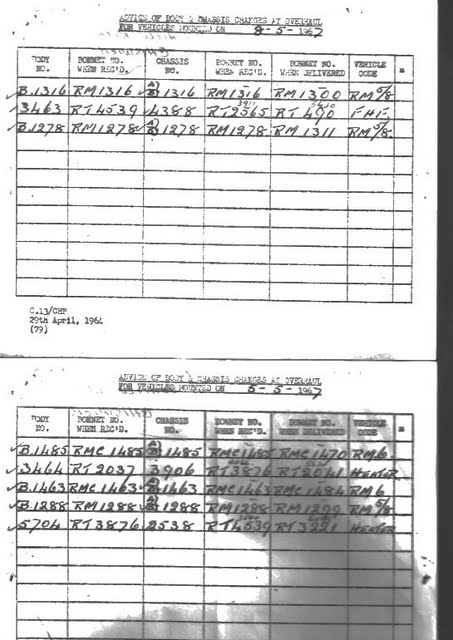 ADVICE OF BODY & CHASSIS CHANGES AT OVERHAUL
FOR VEHICLES MOUNTED ON 8-5-1967
BODY NO. BONNET NO. WHEN REC'D. CHASSIS NO. BONNET NO. WHEN REC'D. BONNET NO. WHEN DELIVERED VEHICLE CODE
B.1316 RM1316 1316 RM1316 RM1300 RM 5/8
3463 RT4539 4388 RT2565 RT490
B.1278 RM1278 1278 RM1278 RM1311 RM 5/8
C.13/CHP
29th April, 1964
(79)
ADVICE OF BODY & CHASSIS CHANGES AT OVERHAUL
FOR VEHICLES MOUNTED ON 5-5-1967
BODY NO. BONNET NO. WHEN REC'D. CHASSIS NO. BONNET NO. WHEN REC'D. BONNET NO. WHEN DELIVERED VEHICLE CODE
B.1485 RMC1485 1485 RMC1485 RMC1470 RM6
3464 RT2037 3906 RT3876 RT2041 HEATER
B.1463 RMC1463 1463 RMC1463 RMC1484 RM6
B.1288 RM1288 1288 RM1288 RM1299 RM 5/8
5704 RT3876 2538 RT4539 RT3221 HEATER